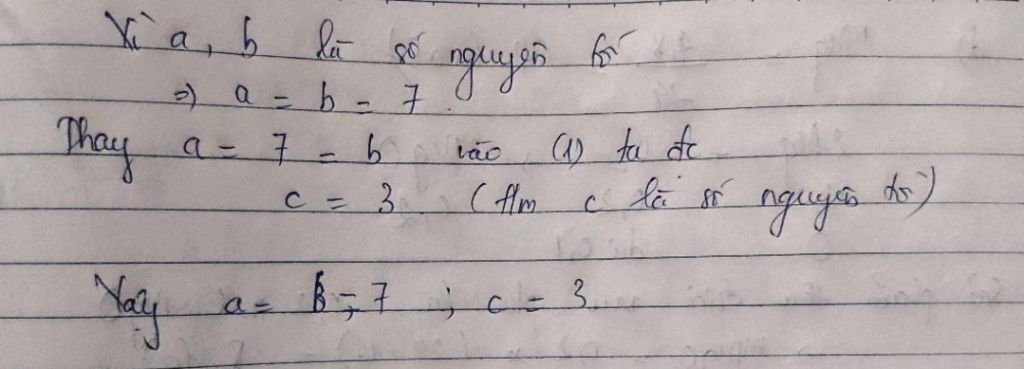 Vì a, b là số nguyên tố
=> a = b = 7.
Thay a = 7 = b vào (1) ta đc
c = 3. (t/m c là số nguyên tố)
Vậy a = b = 7 ; c = 3